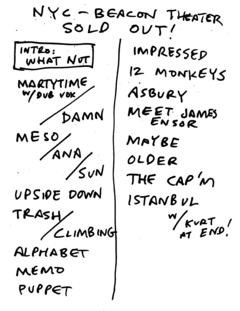 NYC - BEACON THEATER
SOLD OUT!
INTRO:
WHAT NUT
MARTYTIME
W/DUB VOX
/DAMN
MESO
/ANA
/SUN
UPSIDE DOWN
TRASH
/CLIMBING
ALPHABET
MEMO
PUPPET
IMPRESSED
12 MONKEYS
ASBURY
MEET JAMES
ENSOR
MAYBE
OLDER
THE CAP'M
ISTANBUL
W/KURT
AT END!